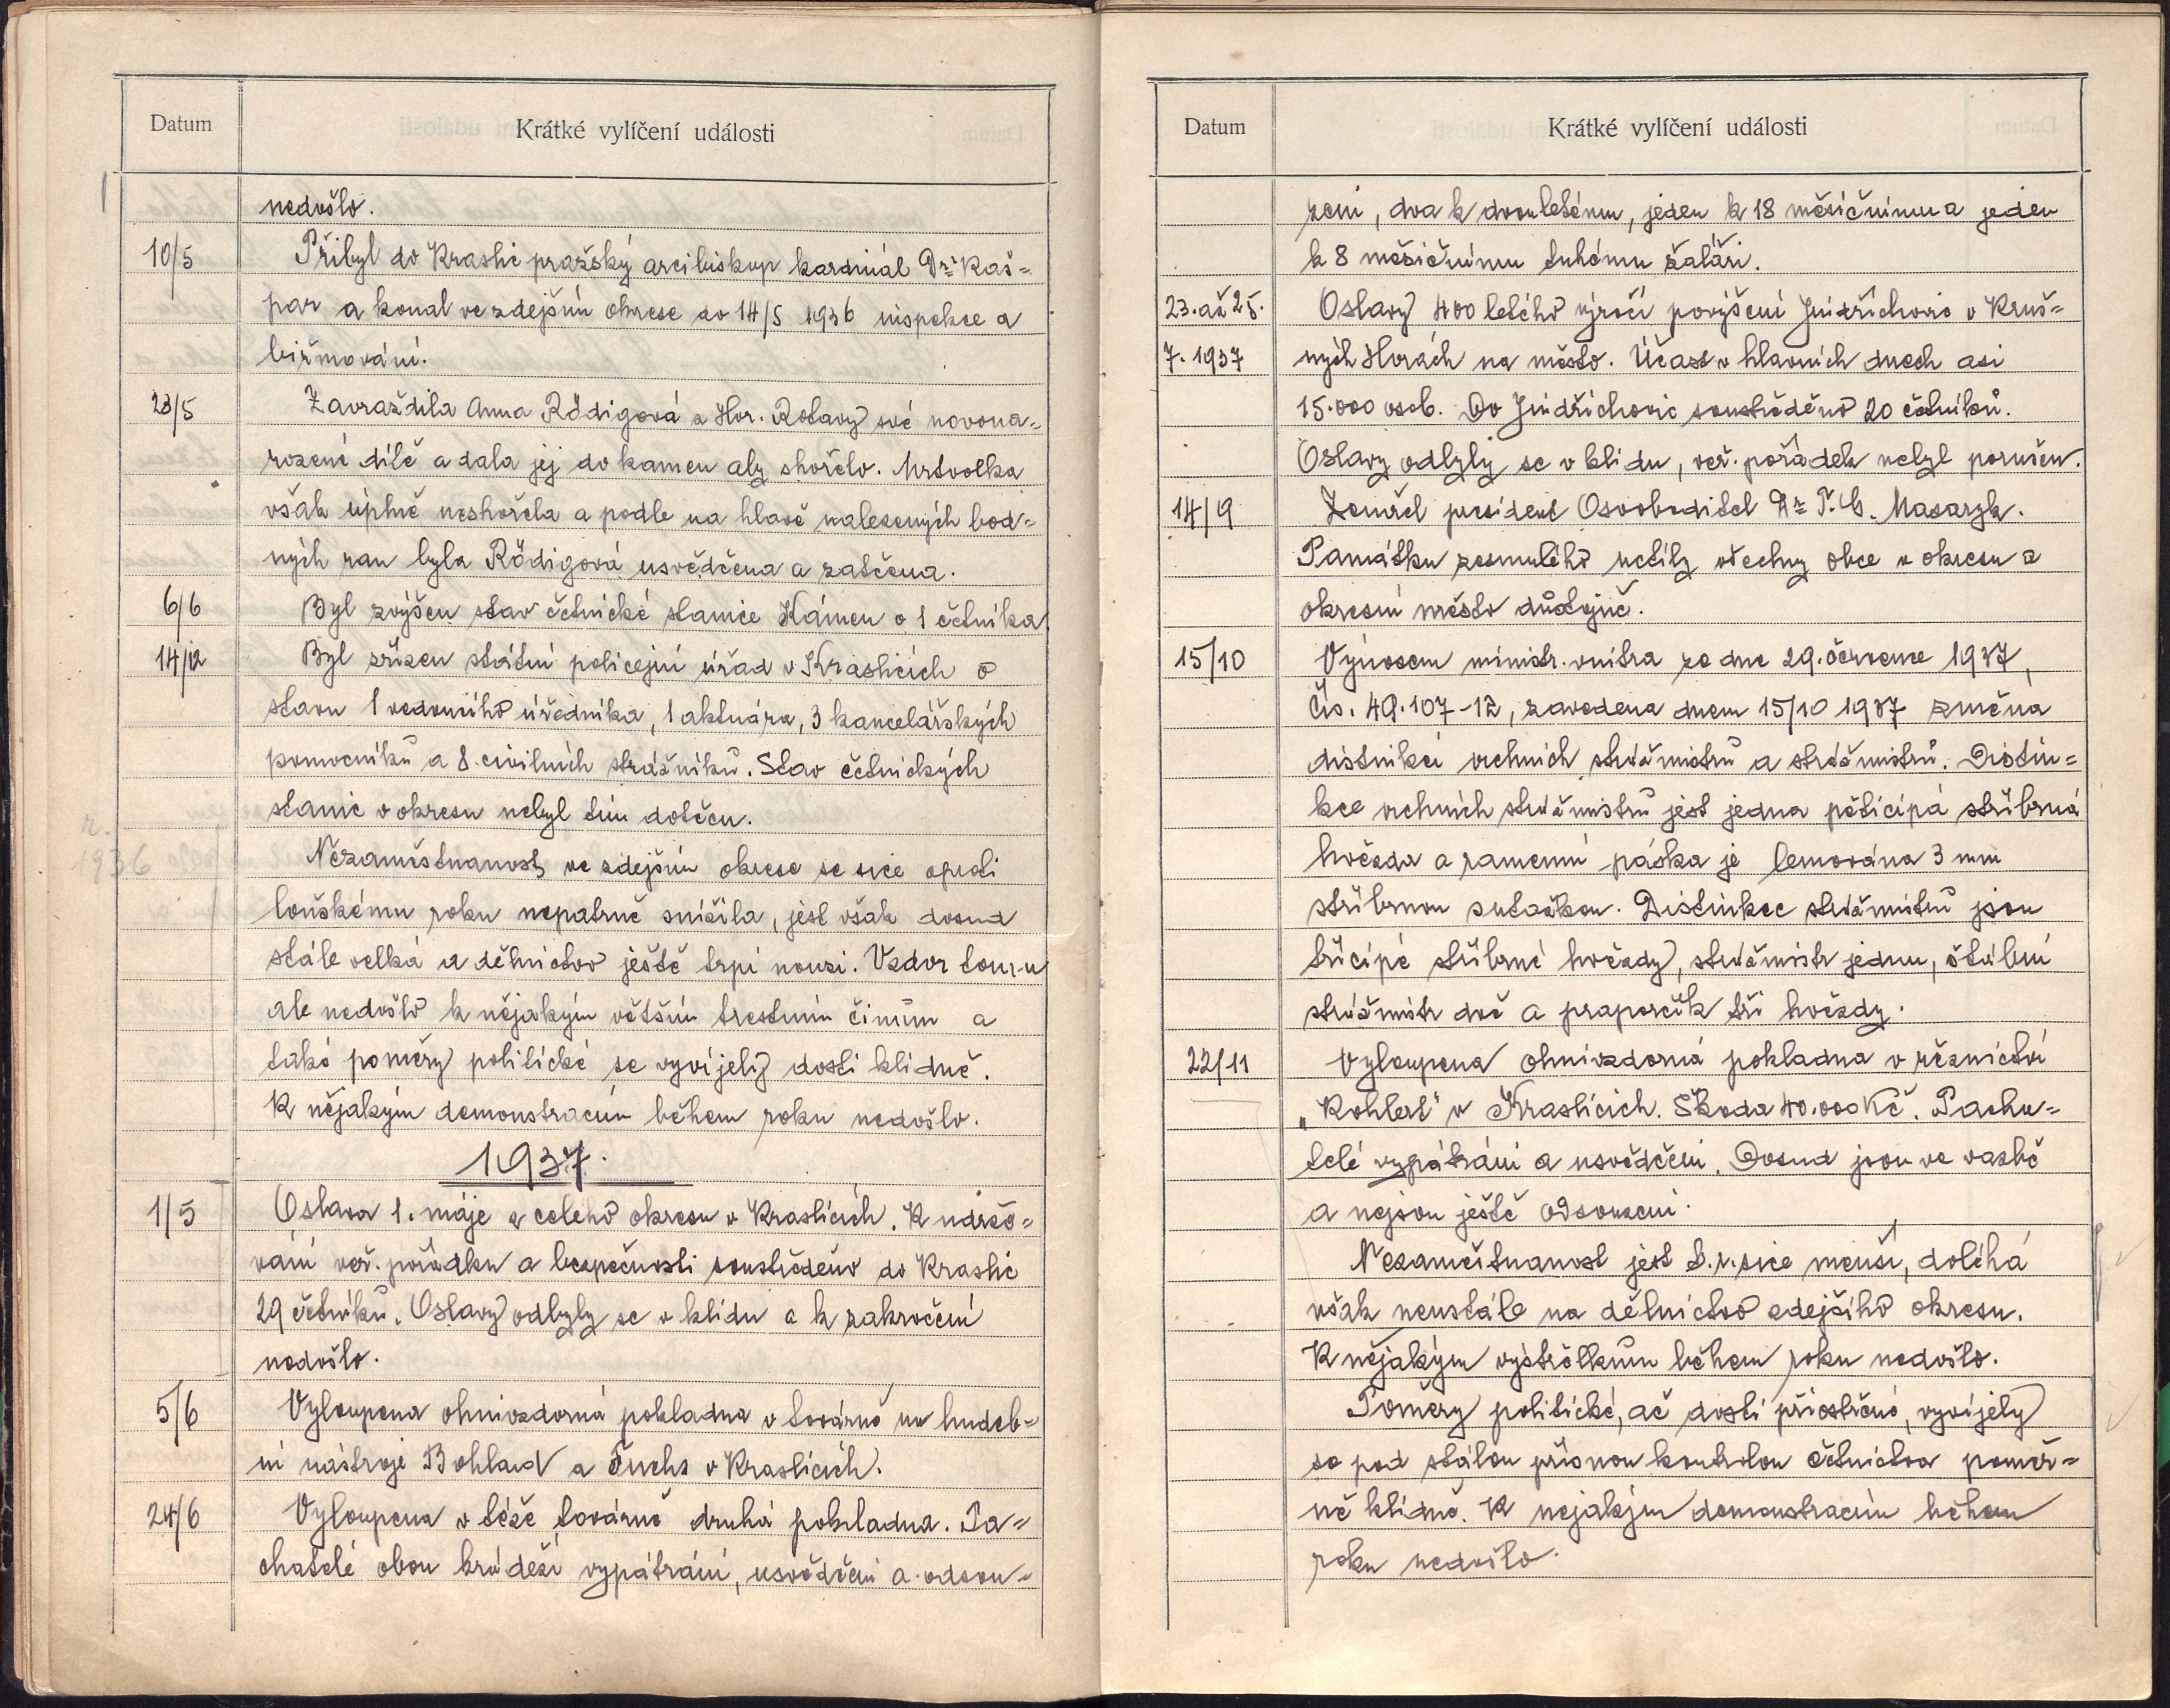 Datum Krátké vylíčení události
nedošlo.
10/5 Přibyl do Kraslic pražský arcibiskup kardinál Dr. Kaš=
par a konal ve zdejším okrese do 14/5 1936 inspekce a
biřmování.
23/5 Zavraždila Anna Rödigová z Hor. Rotavy své novona=
rozené dítě a dala jej do kamen aby shořelo. Mrtvolka
však úplně neshořela a podle na hlavě nalezených bod=
ných ran byla Rödigová usvědčena a zatčena.
6/6 Byl zvýšen stav četnické stanice Kámen o 1 četníka.
14/12 Byl zřízen státní policejní úřad v Kraslicích o
stavu 1 vedoucího úředníka, 1 aktuára, 3 kancelářských
pomocníků a 8 civilních strážníků. Stav četnických
stanic v okresu nebyl tím dotčen.
r. 1936
Nezaměstnanost ve zdejším okrese se sice oproti
loňskému roku nepatrně snížila, jest však dosud
stále velká a dělnictvo ještě trpí nouzi. Vzdor tomu
ale nedošlo k nějakým větším trestním činům a
také poměry politické se vyvíjely dosti klidně.
K nějakým demonstracím během roku nedošlo.
1937.
1/5 Oslava 1. máje z celého okresu v Kraslicích. K udržo=
vání veř. pořádku a bezpečnosti soustředěno do Kraslic
29 četníků. Oslavy odbyly se v klidu a k zakročení
nedošlo.
5/6 Vyloupena ohnivzdorná pokladna v továrně na hudeb=
ní nástroje Bohland a Fuchs v Kraslicích.
24/6 Vyloupena v téže továrně druhá pokladna. Pa=
chatelé obou krádeží vypátráni, usvědčeni a odsou=
Datum Krátké vylíčení události
zeni, dva k dvouletému, jeden k 18 měsíčnímu a jeden
k 8 měsíčnímu tuhému žaláři.
23. až 25. Oslavy 400 letého výročí povýšení Jindřichovic v Kruš=
7. 1937 ných Horách na město. Účast v hlavních dnech asi
15.000 osob. Do Jindřichovic soustředěno 20 četníků.
Oslavy odbyly se v klidu, veř. pořádek nebyl porušen.
14/9 Zemřel president Osvoboditel Dr. T. G. Masaryk.
Památku zesnulého uctily všechny obce v okresu a
okresní město důstojně.
15/10 Výnosem ministr. vnitra ze dne 29. července 1937,
čís. 49.107-12, zavedena dnem 15/10 1937 změna
distinkcí vrchních strážmistrů a strážmistrů. Distin=
kce vrchních strážmistrů jest jedna pěticípá stříbrná
hvězda a ramenní páska je lemována 3 mm
stříbrnou sutaškou. Distinkce strážmistrů jsou
třícípé stříbrné hvězdy, strážmistr jednu, štábní
strážmistr dvě a praporčík tři hvězdy.
22/11 Vyloupena ohnivzdorná pokladna v řeznictví
"Kohlert" v Kraslicích. Škoda 40.000 Kč. Pacha=
telé vypátráni a usvědčeni. Dosud jsou ve vazbě
a nejsou ještě odsouzeni.
Nezaměstnanost jest t. r. sice menší, doléhá
však neustále na dělnictvo zdejšího okresu.
K nějakým výstřelkům během roku nedošlo.
Poměry politické, ač dosti přiostřené, vyvíjely
se pod stálou přísnou kontrolou četnictva poměr=
ně klidně. K nejakým demonstracím během
roku nedošlo.